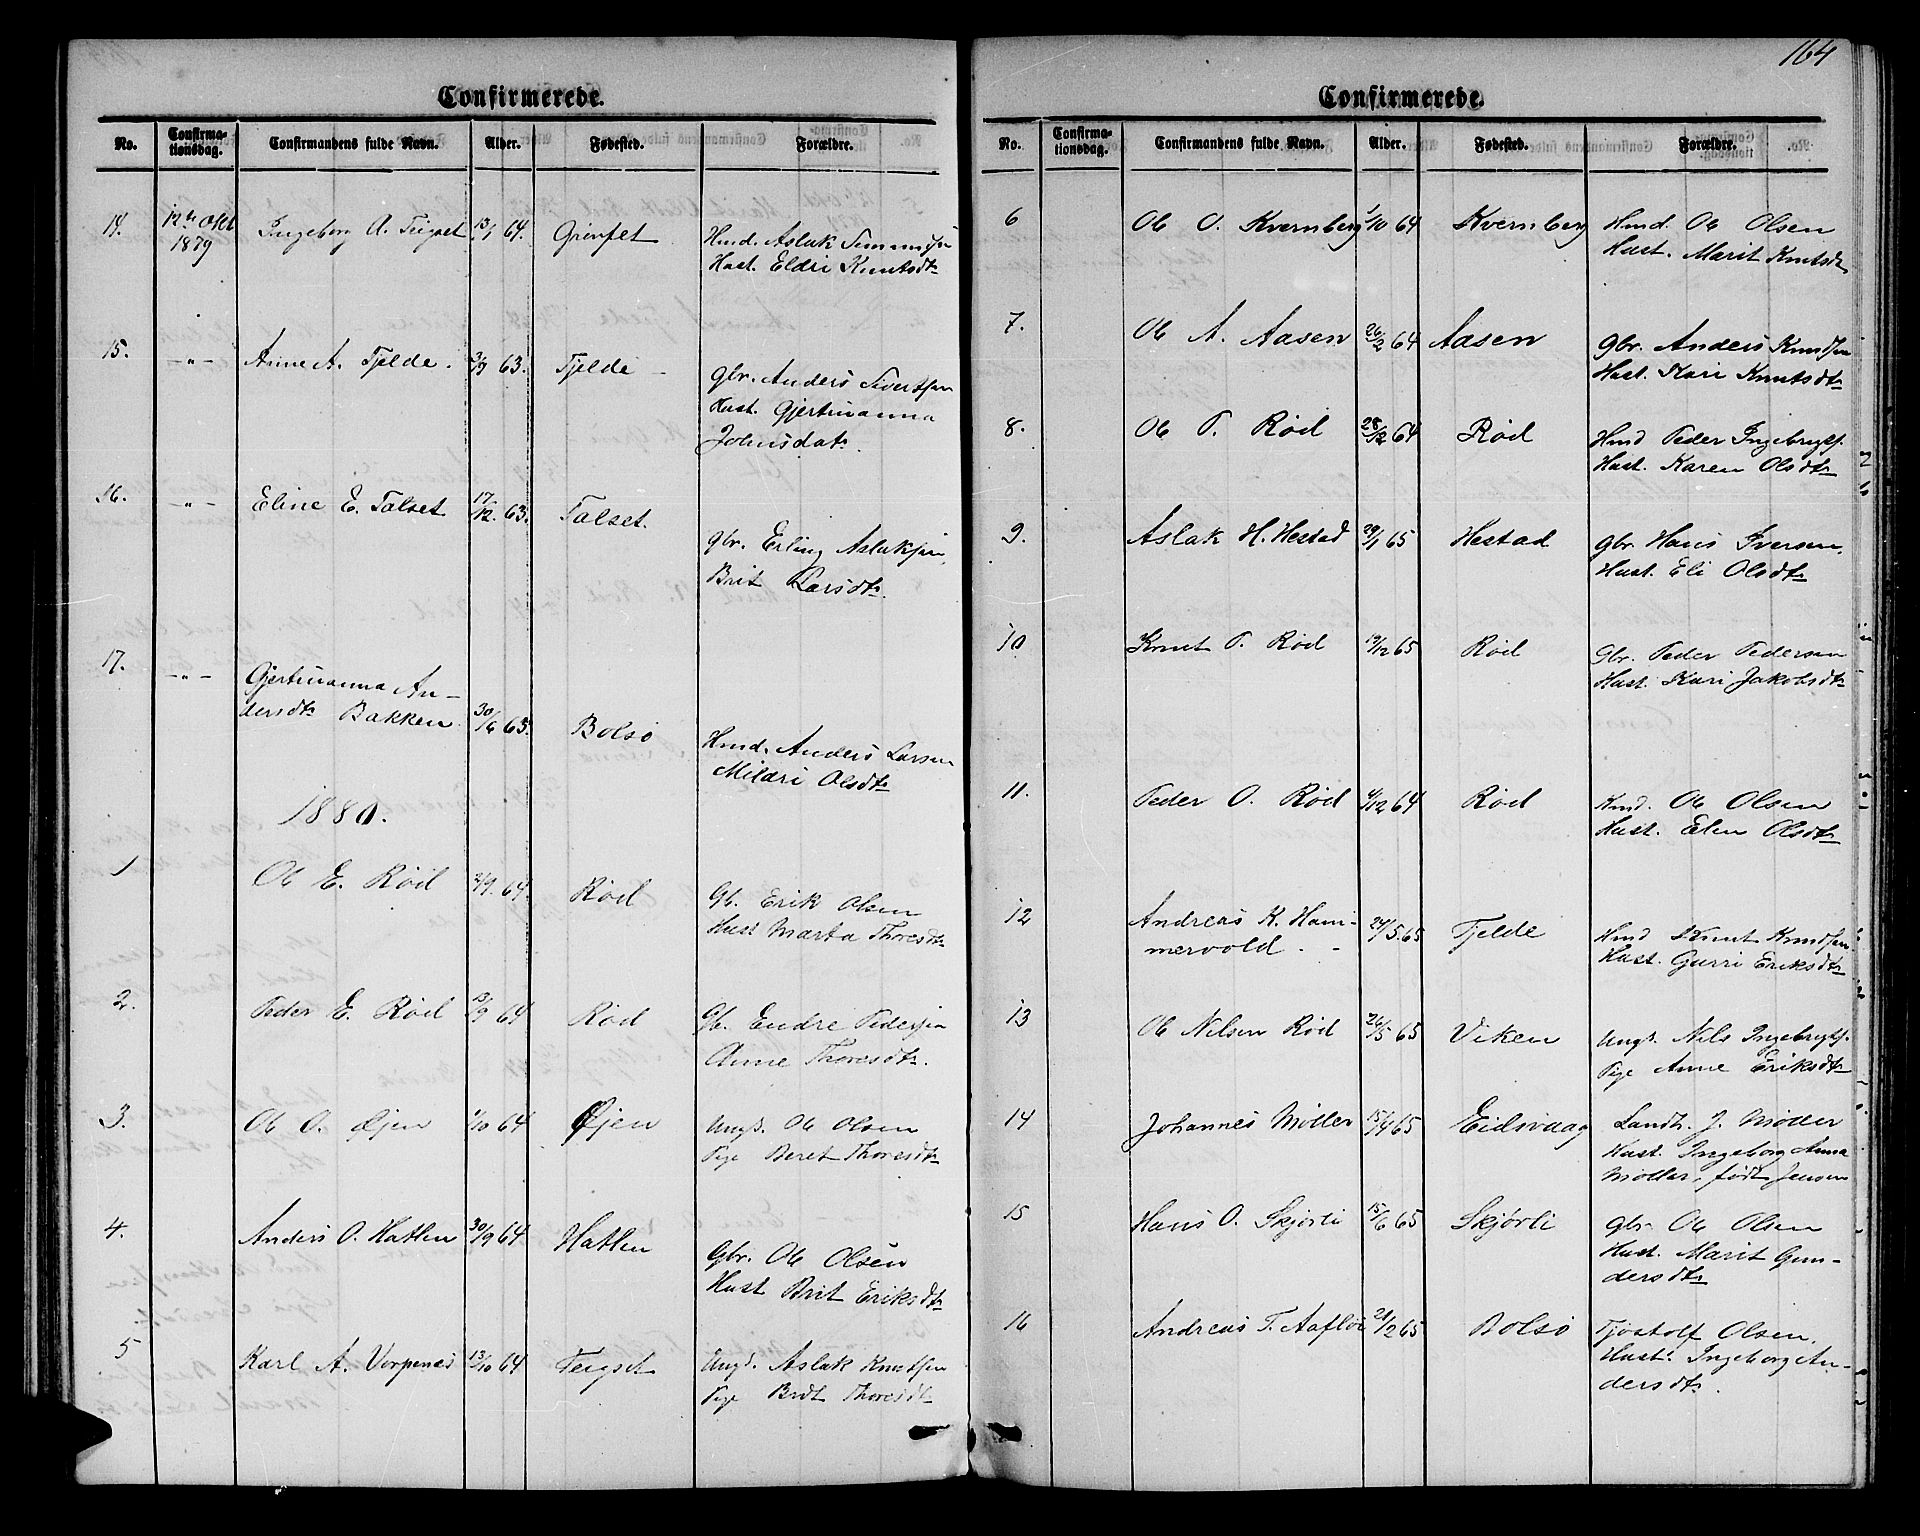 164
Confirmerede.
No. Confirma-
tionsdag. Confirmandens fulde Navn. Alder. Fødested. Forældre.
14. 12te Okt
1879 Ingeborg A. Teigset 13/1 64. Grønset Hmd. Aslak
Hust. Eldri Knutsdtr
15. -"- Anne A. Fjelde. 3/9 63. Fjelde - Gbr. Anders Sivertsen
Hust. Gjertruanna
Johnsdatr.
16. -"- Eline E. Talset 17/12. 63. Talset. Gbr. Erling Aslaksen,
Brit Larsdtr.
17. -"- Gjertruanna An-
dersdtr Bakken. 30/6 63. Bolsø Hmd. Anders Larsen
Mildri Olsdtr
1880.
1 Ole E. Rød 2/9. 64. Rød Gb. Erik Olsen
Hust Marta Thoresdtr
2. Peder E. Rød 13/9 64 Rød Gb. Endre Pedersen
Anne Thoresdtr.
3. Ole O. Øjen 1/10 64 Øjen Ungk. Ole Olsen
Pige Beret Thoresdtr
4. Anders O. Hatlen 30/9 64 Hatlen Gbr. Ole Olsen
Hust Brit Eriksdtr
5 Karl A. Vorpenes 13/10 64 Teigset Ungk. Aslak Knutsen
Pige Brit Thoresdtr
Confirmerede.
No. Confirma-
tionsdag. Confirmandens fulde Navn. Alder. Fødested. Forældre.
6 Ole O. Kvernberg 1/10 64 Kvernberg Hmd. Ole Olsen
Hust. Marit Knutsdtr
7. Ole A. Aasen 26/12 64 Aasen Gbr. Anders Knudsen
Hust. Kari Knutsdtr
8. Ole P. Rød 28/12 64 Rød Hmd Peder Ingebrigts.
Hust. Karen Olsdtr
9. Aslak H. Hestad 29/1 65 Hestad Gbr Hans Iversen,
Hust. Eli Olsdtr
10 Knut P. Rød 19/12 65 Rød Gbr. Peder Pedersen
Hust. Kari Jakobsdtr
11. Peder O. Rød 4/12 64 Rød Hmd. Ole Olsen
Hust. Elen Olsdtr
12 Andreas K. Ham-
mervold. - 24/5. 65 Fjelde Hmd Knut Knudsen
Hust. Gurri Eriksdtr
13 Ole Nilsen Rød 26/5 65 Viken Ungk. Nils Ingebrigts.
Pige Anne Eriksdtr
14 Johannes Møller 15/4 65 Eidsvaag Landh. J. Møller
Hust. Ingeborg Anna
Møller, født Jensen
15 Hans O. Skjørli 15/6 65 Skjørli Gbr. Ole Olsen
Hust. Marit Gun-
dersdtr
16 Andreas T. Aafløi 21/2 65 Bolsø Tjøstolf Olsen,
Hust. Ingeborg An-
dersdtr.